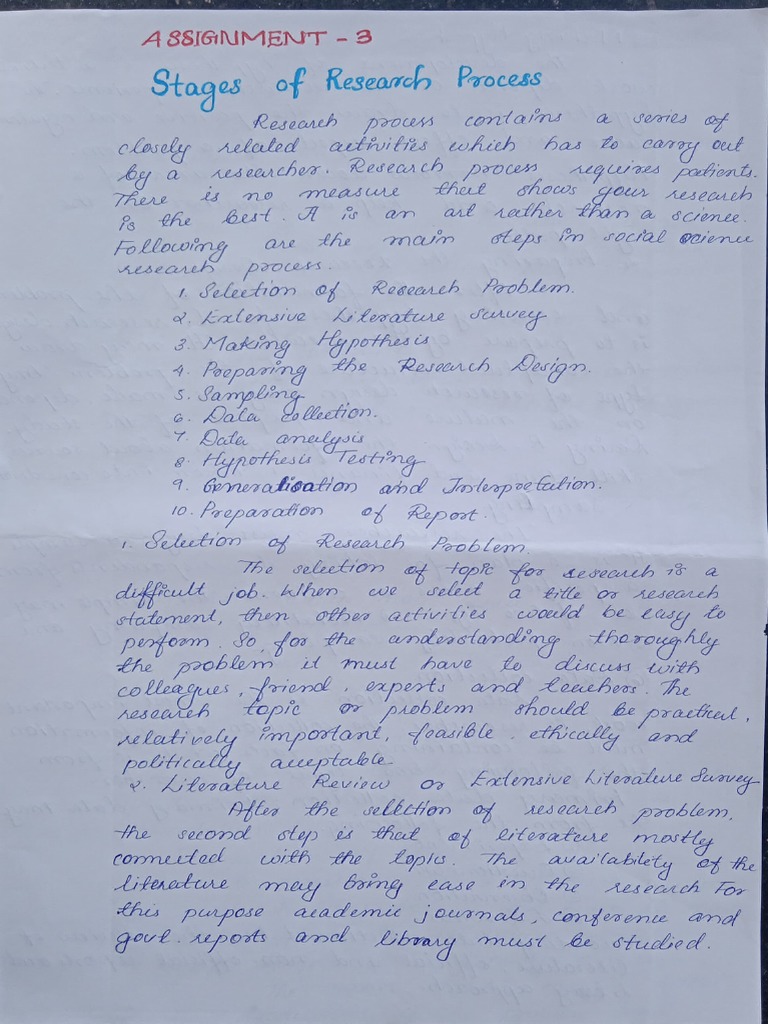 ASSIGNMENT - 3
Stages of Research Process
Research process contains a series of
closely related activities which has to carry out
by a researcher. Research process requires patients.
There is no measure that shows your research
is the best. It is an art rather than a science.
Following are the main steps in social science
research process.
1. Selection of Research Problem.
2. Extensive Literature Survey
3. Making Hypothesis
4. Preparing the Research Design.
5. Sampling
6. Data collection.
7. Data analysis
8. Hypothesis Testing
9. Generalisation and Interpretation.
10. Preparation of Report.
1. Selection of Research Problem.
The selection of topic for research is a
difficult job. When we select a title or research
statement, then other activities would be easy to
perform. So, for the understanding thoroughly
the problem it must have to discuss with
colleagues, friend, experts and teachers. The
research topic or problem should be practical,
relatively important, feasible, ethically and
politically acceptable
2. Literature Review or Extensive Literature Survey
After the selection of research problem,
the second step is that of literature mostly
connected with the topics. The availability of the
literature may bring ease in the research For
this purpose academic journals, conference and
govt. reports and library must be studied.